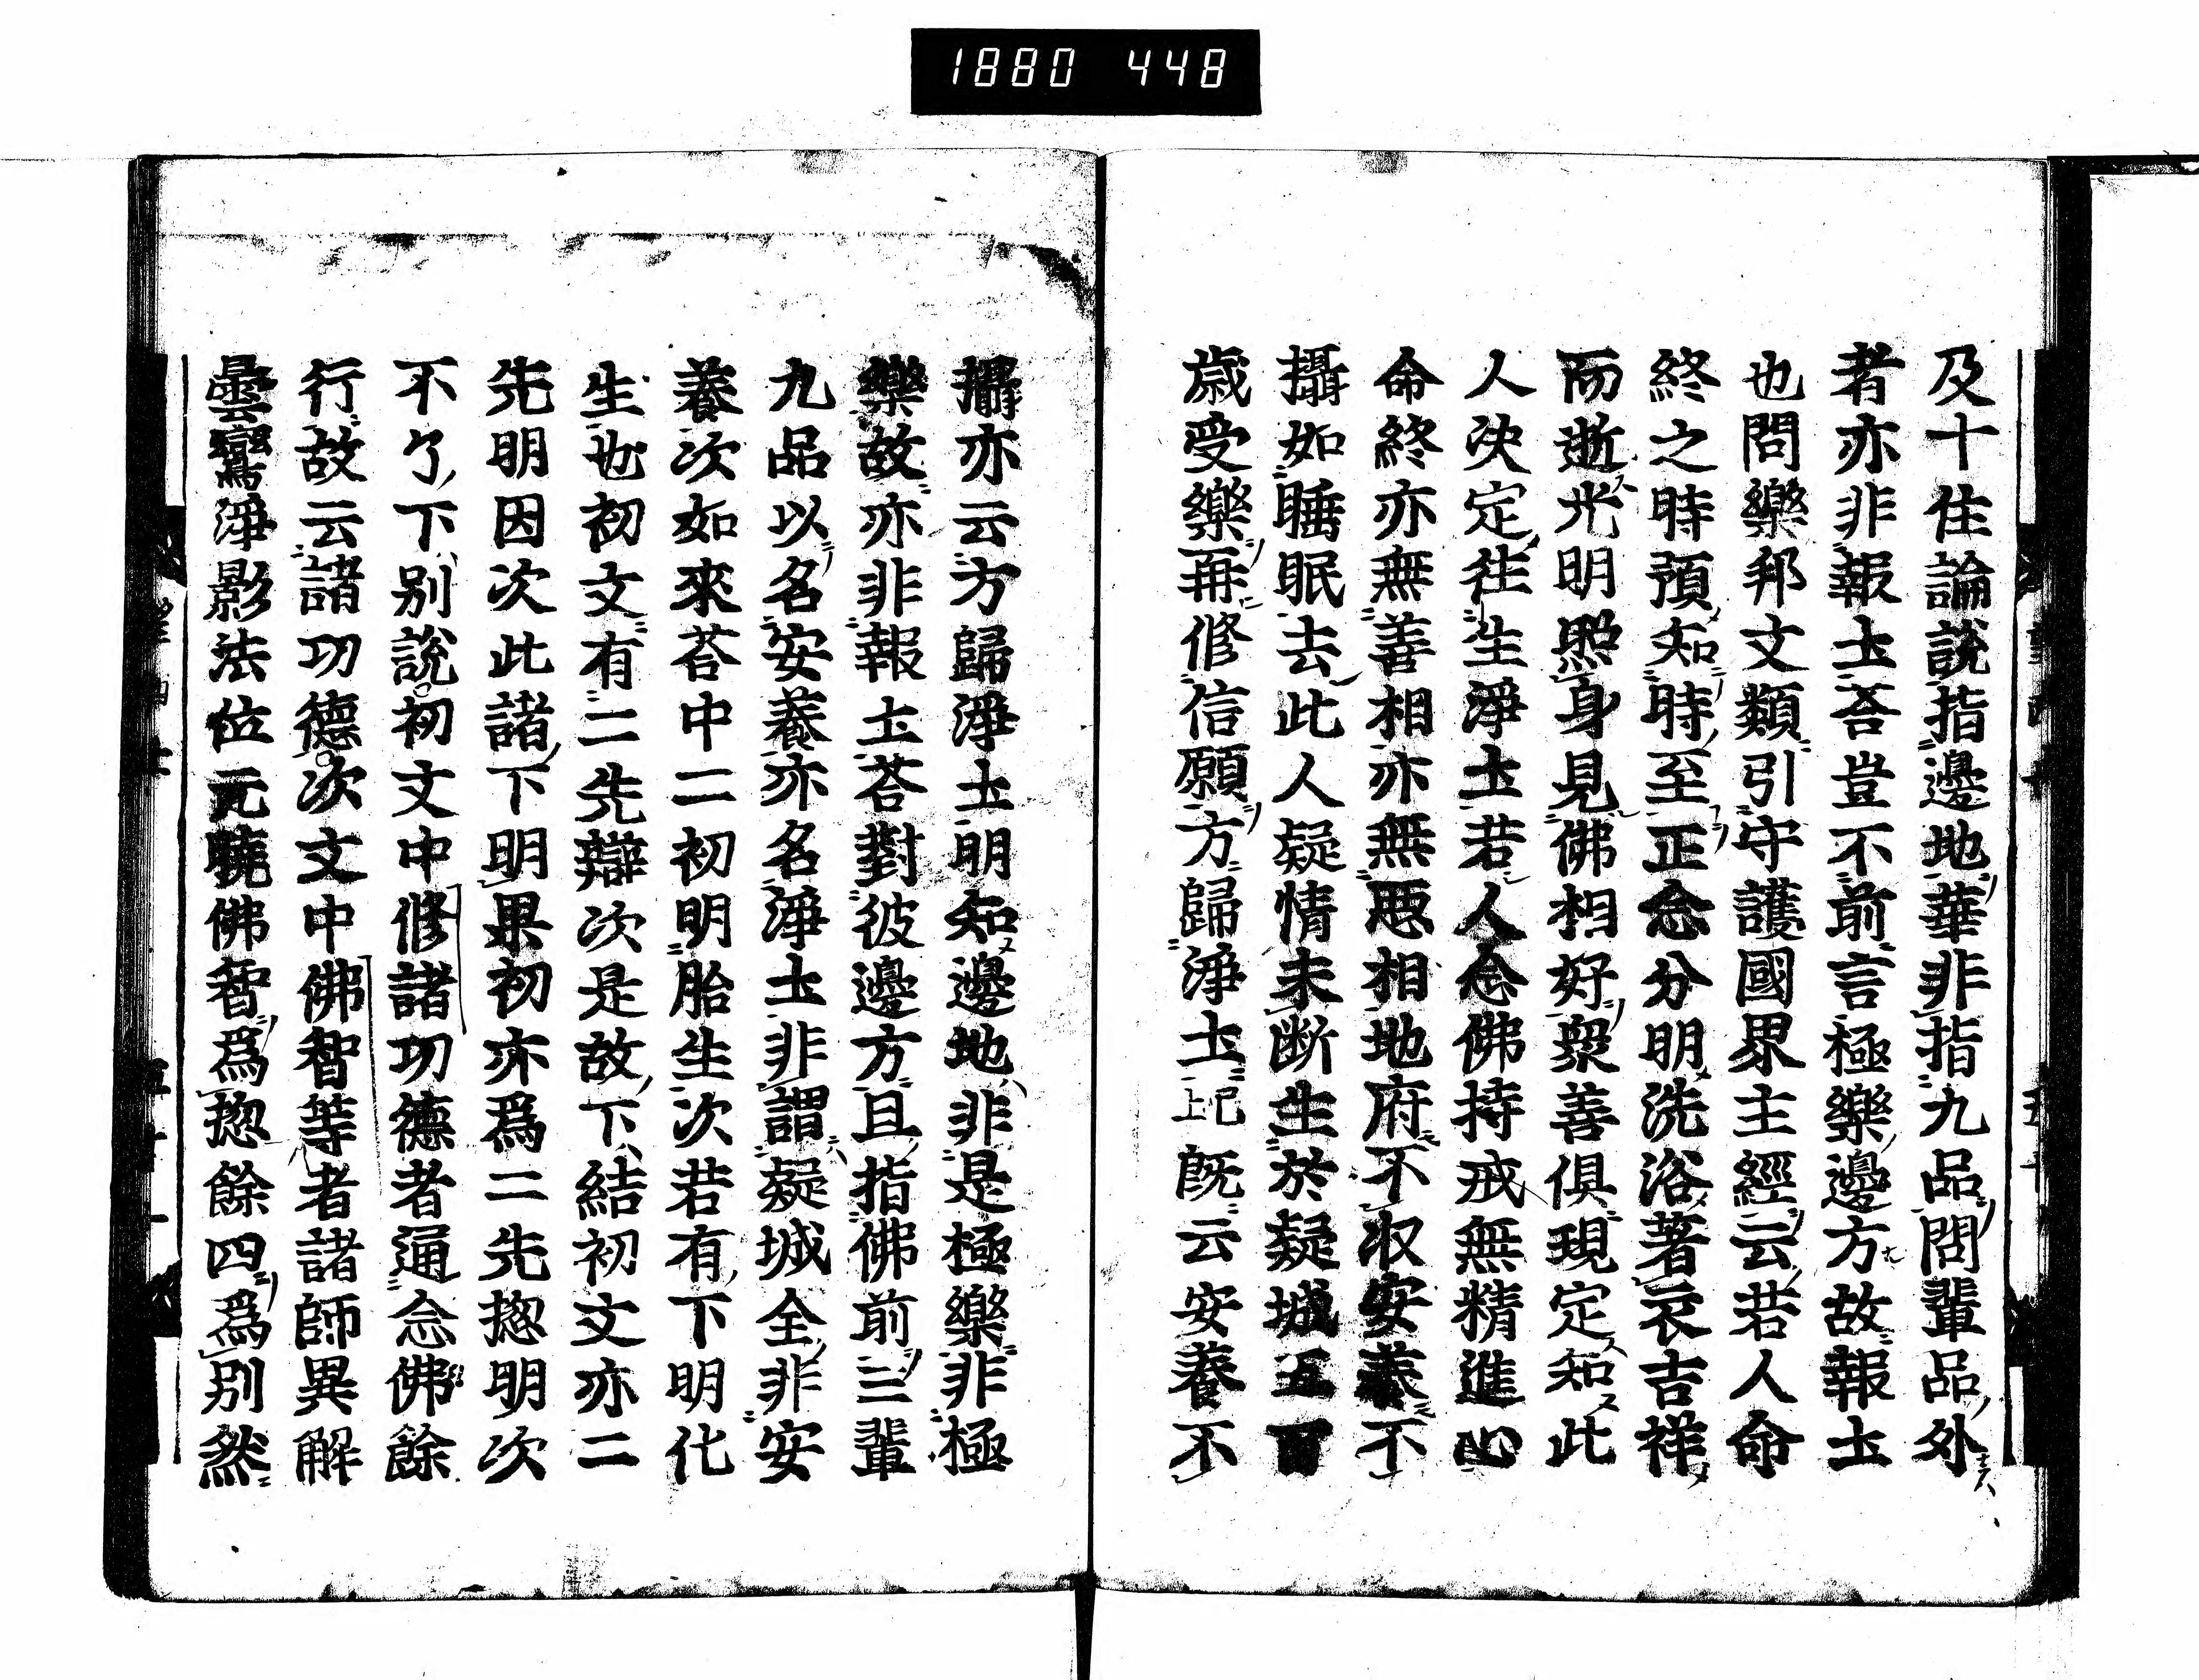 1880 448
及十住論說指邊地華非指九品問輩品外
者亦非報土荅豈不前言極樂邊方故報土
也問樂邦文類引守護國界主經云若人命
終之時預知時至正念分明洗浴著衣吉祥
而逝光明照身見佛相好衆善俱現定知此
人決定往生淨土若人念佛持戒無精進心
命終亦無善相亦無悪相地府不収安養不
攝如睡眠去此人疑情未断生於疑城五百
歳受樂再修信願方歸淨土已上既云安養不
攝亦云方歸淨土明知邊地非是極樂非極
樂故亦非報土荅對彼邊方且指佛前三輩
九品以名安養亦名淨土非謂疑城全非安
養次如來荅中二初明胎生次若有下明化
生也初文有二先辯次是故下結初文亦二
先明因次此諸下明果初亦爲二先揔明次
不了下別說初文中修諸功德者通念佛餘
行故云諸功德次文中佛智等者諸師異解
曇鸞淨影法位元曉佛智爲揔餘四爲別然